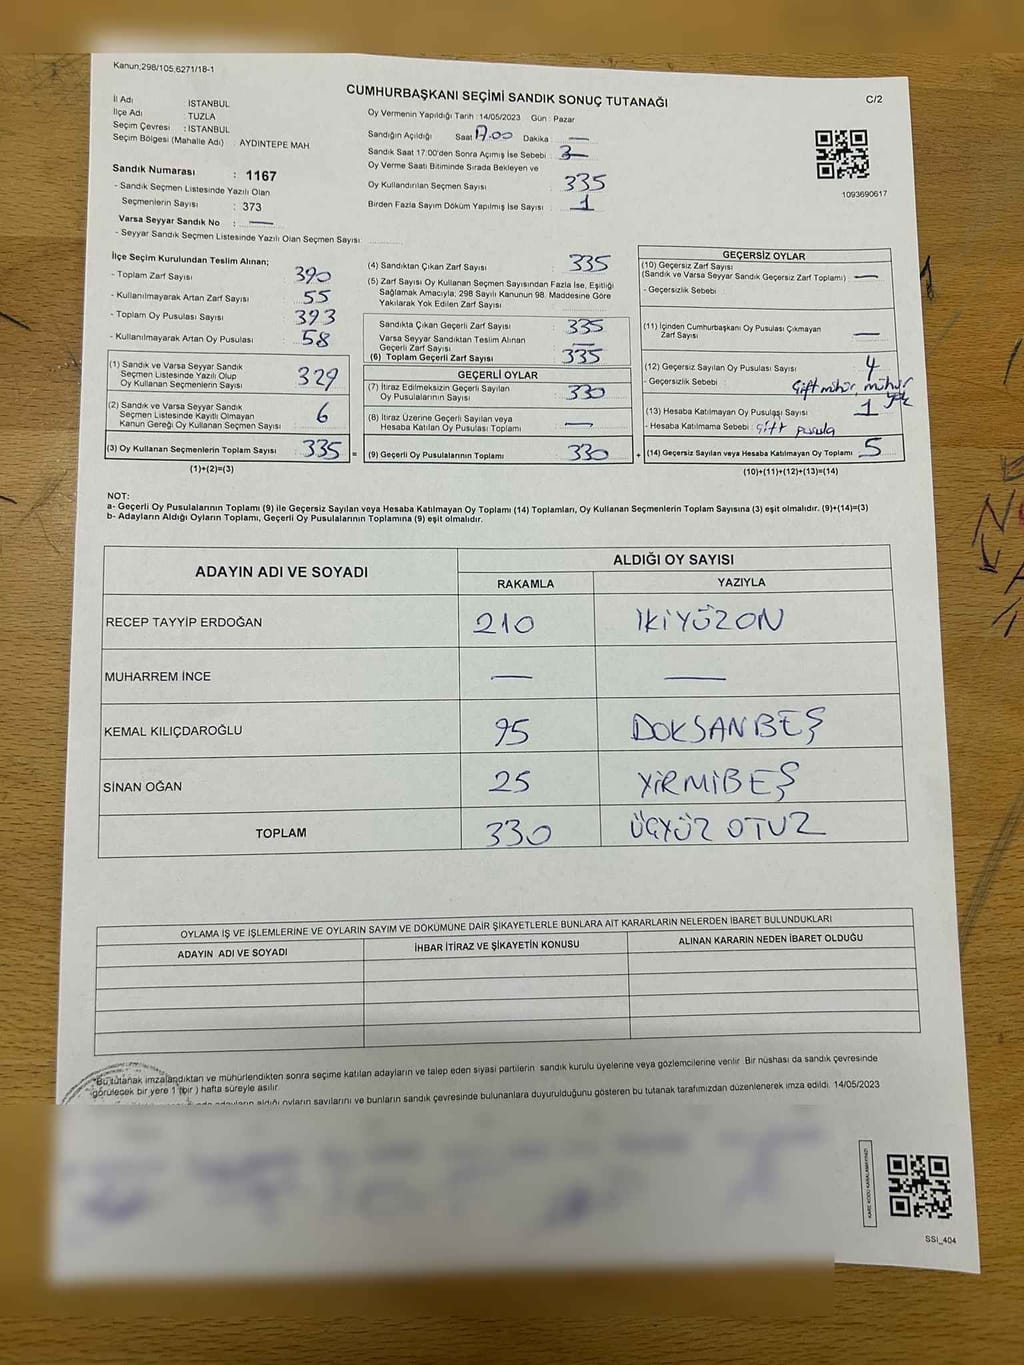 Kanun;298/105,6271/18-1
CUMHURBAŞKANI SEÇİMİ SANDIK SONUÇ TUTANAĞI
C/2
İl Adı : İSTANBUL
İlçe Adı : TUZLA
Seçim Çevresi : İSTANBUL
Seçim Bölgesi (Mahalle Adı) : AYDINTEPE MAH
Oy Vermenin Yapıldığı Tarih : 14/05/2023 Gün : Pazar
Sandığın Açıldığı Saat 17.00 Dakika : —
Sandık Saat 17:00'den Sonra Açımış İse Sebebi :
Oy Verme Saati Bitiminde Sırada Bekleyen ve
Oy Kullandırılan Seçmen Sayısı : 335
Birden Fazla Sayım Döküm Yapılmış İse Sayısı : 1
1093690617
Sandık Numarası : 1167
- Sandık Seçmen Listesinde Yazılı Olan
Seçmenlerin Sayısı : 373
Varsa Seyyar Sandık No : —
- Seyyar Sandık Seçmen Listesinde Yazılı Olan Seçmen Sayısı
İlçe Seçim Kurulundan Teslim Alınan;
- Toplam Zarf Sayısı : 390
- Kullanılmayarak Artan Zarf Sayısı : 55
- Toplam Oy Pusulası Sayısı : 393
- Kullanılmayarak Artan Oy Pusulası : 58
(1) Sandık ve Varsa Seyyar Sandık
Seçmen Listesinde Yazılı Olup
Oy Kullanan Seçmenlerin Sayısı : 329
(2) Sandık ve Varsa Seyyar Sandık
Seçmen Listesinde Kayıtlı Olmayan
Kanun Gereği Oy Kullanan Seçmen Sayısı : 6
(3) Oy Kullanan Seçmenlerin Toplam Sayısı : 335 =
(1)+(2)=(3)
(4) Sandıktan Çıkan Zarf Sayısı : 335
(5) Zarf Sayısı Oy Kullanan Seçmen Sayısından Fazla İse, Eşitliği
Sağlamak Amacıyla; 298 Sayılı Kanunun 98. Maddesine Göre
Yakılarak Yok Edilen Zarf Sayısı
Sandıkta Çıkan Geçerli Zarf Sayısı : 335
Varsa Seyyar Sandıktan Teslim Alınan
Geçerli Zarf Sayısı : —
(6) Toplam Geçerli Zarf Sayısı : 335
GEÇERLİ OYLAR
(7) İtiraz Edilmeksizin Geçerli Sayılan
Oy Pusulalarının Sayısı : 330
(8) İtiraz Üzerine Geçerli Sayılan veya
Hesaba Katılan Oy Pusulası Toplamı : —
(9) Geçerli Oy Pusulalarının Toplamı : 330 +
GEÇERSİZ OYLAR
(10) Geçersiz Zarf Sayısı
(Sandık ve Varsa Seyyar Sandık Geçersiz Zarf Toplamı) : —
- Geçersizlik Sebebi :
(11) İçinden Cumhurbaşkanı Oy Pusulası Çıkmayan
Zarf Sayısı : —
(12) Geçersiz Sayılan Oy Pusulası Sayısı : 4
- Geçersizlik Sebebi : Çift mühür, mühür
yok
(13) Hesaba Katılmayan Oy Pusulası Sayısı : 1
- Hesaba Katılmama Sebebi : Çift pusula
(14) Geçersiz Sayılan veya Hesaba Katılmayan Oy Toplamı : 5
(10)+(11)+(12)+(13)=(14)
NOT:
a- Geçerli Oy Pusulalarının Toplamı (9) ile Geçersiz Sayılan veya Hesaba Katılmayan Oy Toplamı (14) Toplamları, Oy Kullanan Seçmenlerin Toplam Sayısına (3) eşit olmalıdır. (9)+(14)=(3)
b- Adayların Aldığı Oyların Toplamı, Geçerli Oy Pusulalarının Toplamına (9) eşit olmalıdır.
ADAYIN ADI VE SOYADI
ALDIĞI OY SAYISI
RAKAMLA YAZIYLA
RECEP TAYYİP ERDOĞAN 210 İKİYÜZON
MUHARREM İNCE — —
KEMAL KILIÇDAROĞLU 95 DOKSANBEŞ
SİNAN OĞAN 25 YİRMİBEŞ
TOPLAM 330 ÜÇYÜZ OTUZ
OYLAMA İŞ VE İŞLEMLERİNE VE OYLARIN SAYIM VE DÖKÜMÜNE DAİR ŞİKAYETLERLE BUNLARA AİT KARARLARIN NELERDEN İBARET BULUNDUKLARI
ADAYIN ADI VE SOYADI İHBAR İTİRAZ VE ŞİKAYETİN KONUSU ALINAN KARARIN NEDEN İBARET OLDUĞU
*Bu tutanak imzalandıktan ve mühürlendikten sonra seçime katılan adayların ve talep eden siyasi partilerin sandık kurulu üyelerine veya gözlemcilerine verilir. Bir nüshası da sandık çevresinde
görülecek bir yere 1 (bir) hafta süreyle asılır.
adayların aldığı oyların sayılarını ve bunların sandık çevresinde bulunanlara duyurulduğunu gösteren bu tutanak tarafımızdan düzenlenerek imza edildi. 14/05/2023
KARE KODU KARALAMAYINIZ!
SSI_404